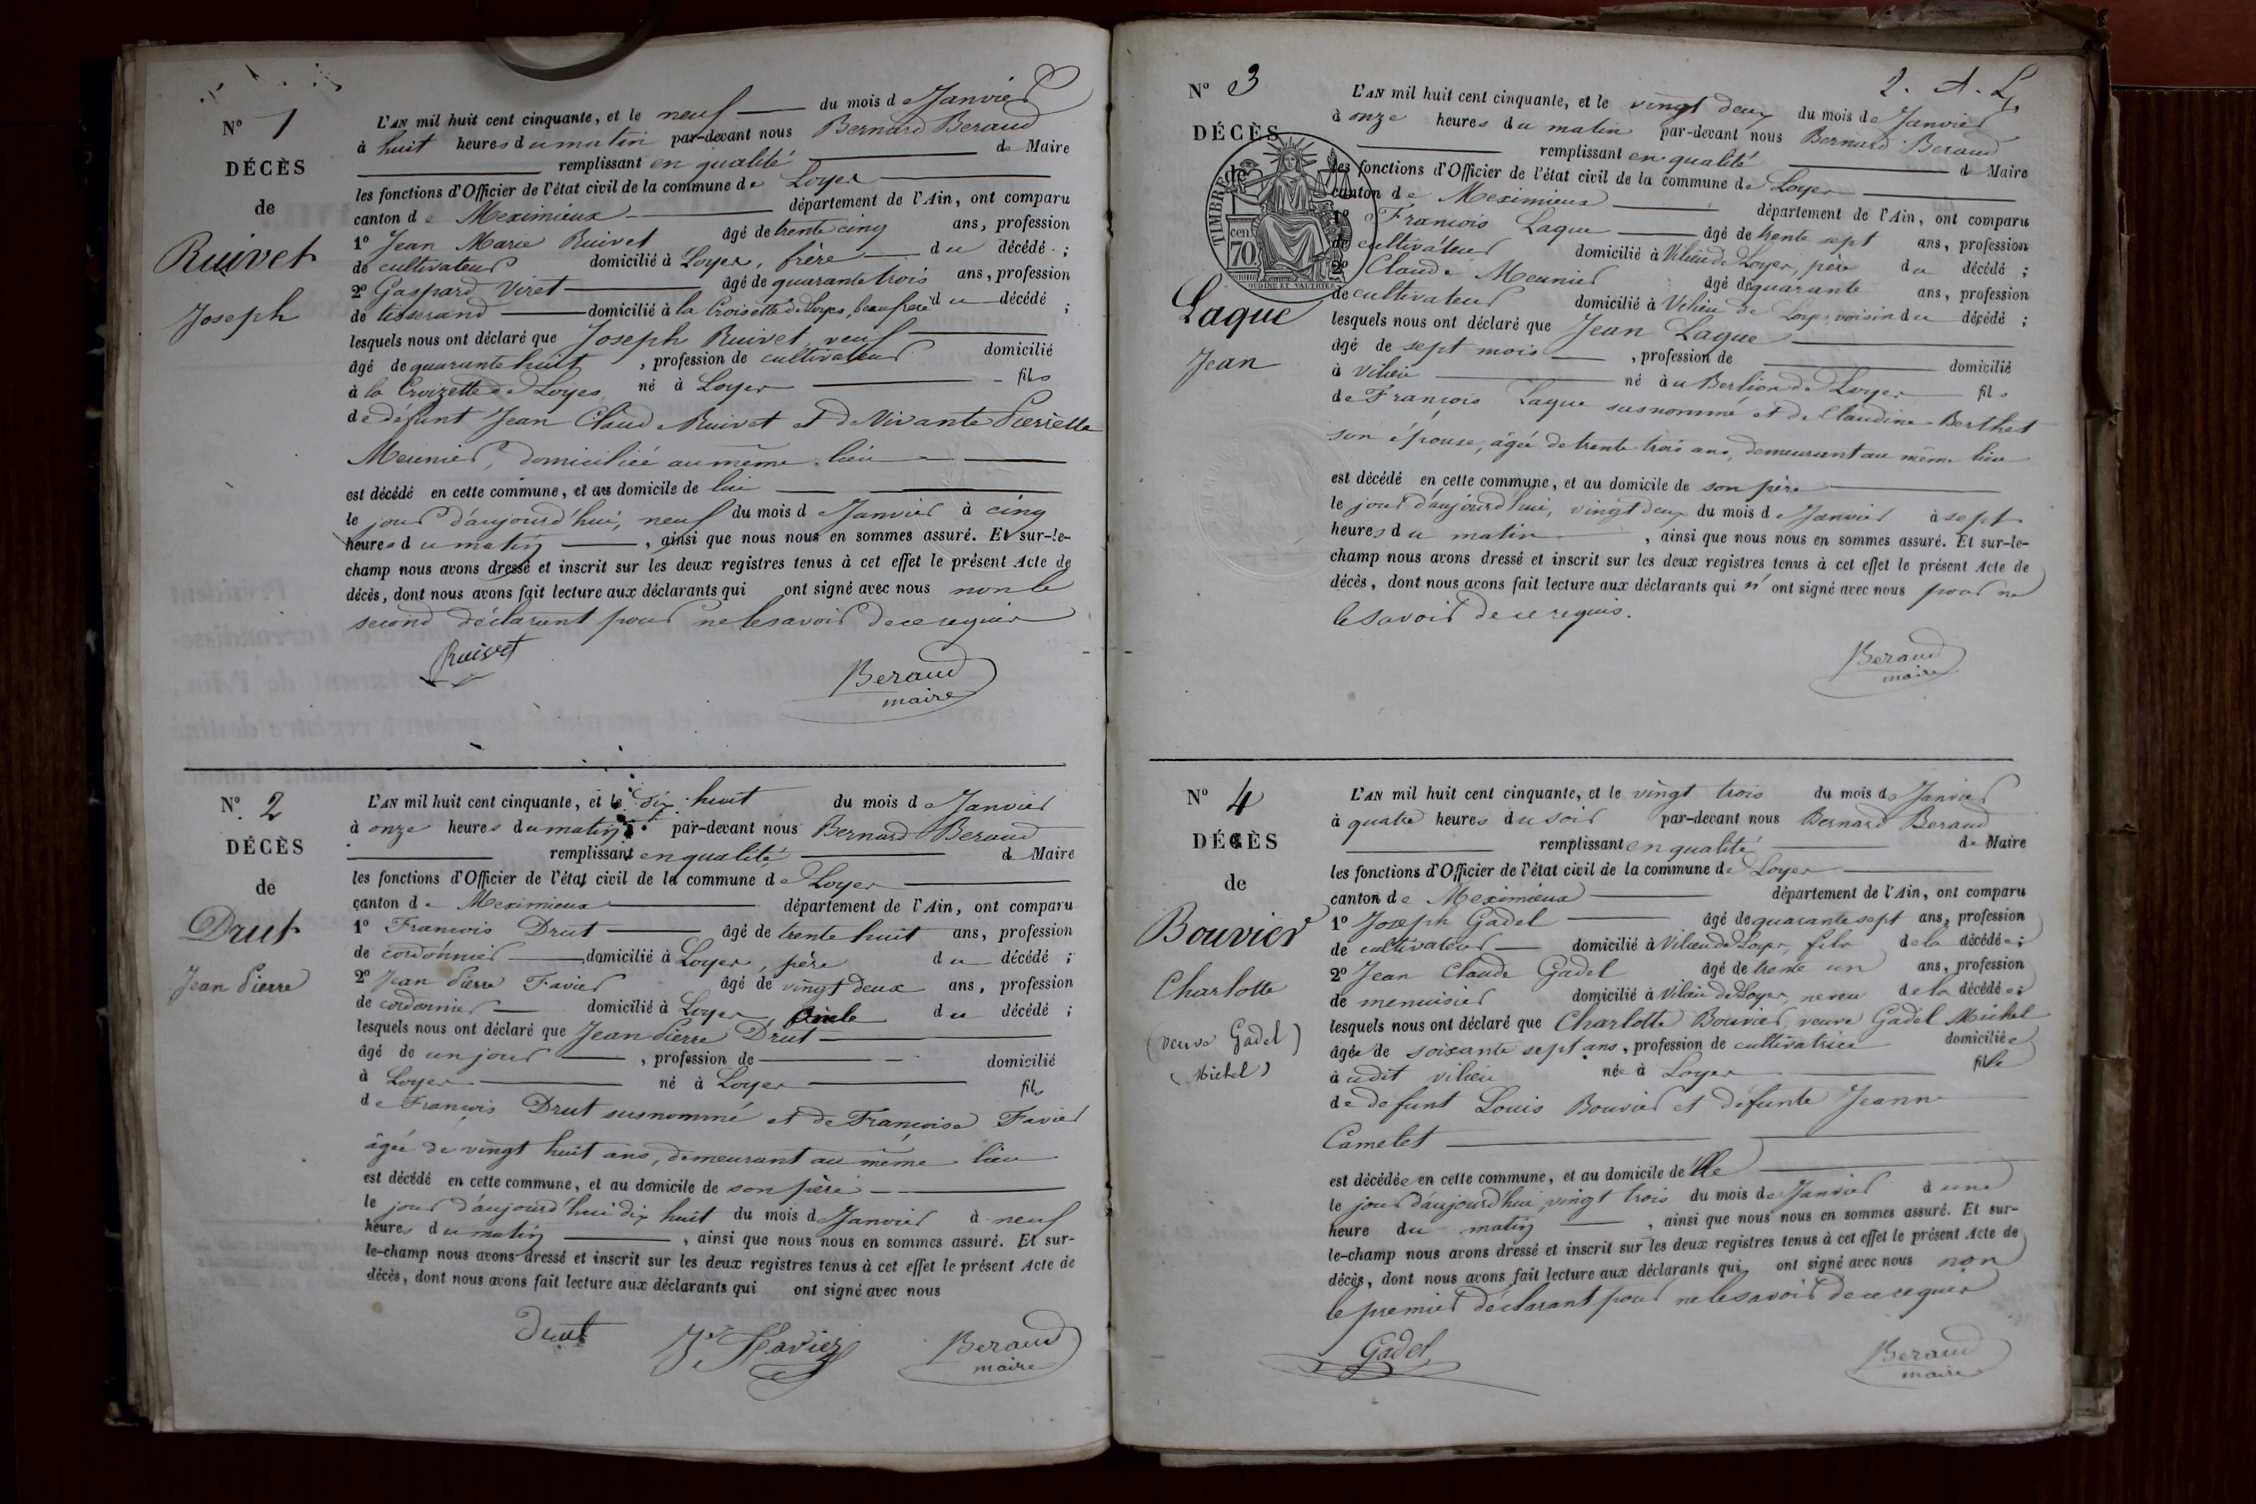 N° 1
DÉCÈS
de
Ruivet
Joseph
L'AN mil huit cent cinquante, et le neuf du mois de Janvier
à huit heures du matin par-devant nous Bernard Beraud
remplissant en qualité de Maire
les fonctions d'Officier de l'état civil de la commune de Loyes
canton de Meximieux département de l'Ain, ont comparu
1° Jean Marie Ruivet âgé de trente cinq ans, profession
de cultivateur domicilié à Loyes, frère du décédé ;
2° Gaspard Viret âgé de quarante trois ans, profession
de tisserand domicilié à la Croisette de Loyes, beaufrère du décédé ;
lesquels nous ont déclaré que Joseph Ruivet, veuf
âgé de quarante huit , profession de cultivateur domicilié
à la Croizette de Loyes né à Loyes fils
de défunt Jean Claude Ruivet et de Vivante Pierrette
Meunier, domiciliée au même lieu
est décédé en cette commune, et au domicile de lui
le jour d'aujourd'hui, neuf du mois de Janvier à cinq
heures du matin , ainsi que nous nous en sommes assuré. Et sur-le-
champ nous avons dressé et inscrit sur les deux registres tenus à cet effet le présent Acte de
décès, dont nous avons fait lecture aux déclarants qui ont signé avec nous non le
second déclarant pour ne le savoir de ce requis
Ruivet
Beraud
maire
N° 2
DÉCÈS
de
Drut
Jean Pierre
L'AN mil huit cent cinquante, et le dix huit du mois de Janvier
à onze heures du matin par-devant nous Bernard Beraud
remplissant en qualité de Maire
les fonctions d'Officier de l'état civil de la commune de Loyes
canton de Meximieux département de l'Ain, ont comparu
1° François Drut âgé de trente huit ans, profession
de cordonnier domicilié à Loyes, père du décédé ;
2° Jean Pierre Favier âgé de vingt deux ans, profession
de cordonnier domicilié à Loyes, oncle du décédé ;
lesquels nous ont déclaré que Jean Pierre Drut
âgé de un jour , profession de domicilié
à Loyes né à Loyes fils
de François Drut susnommé et de Françoise Favier
âgée de vingt huit ans, demeurant au même lieu
est décédé en cette commune, et au domicile de son père
le jour d'aujourd'hui dix huit du mois de Janvier à neuf
heures du matin , ainsi que nous nous en sommes assuré. Et sur-
le-champ nous avons dressé et inscrit sur les deux registres tenus à cet effet le présent Acte de
décès, dont nous avons fait lecture aux déclarants qui ont signé avec nous
Drut
Favier
Beraud
maire
2. A. L
N° 3
DÉCÈS
de
TIMBRE
70 cen
OUDINÉ ET VAUTHIER
Laque
Jean
L'AN mil huit cent cinquante, et le vingt deux du mois de Janvier
à onze heures du matin par-devant nous Bernard Beraud
remplissant en qualité de Maire
les fonctions d'Officier de l'état civil de la commune de Loyes
canton de Meximieux département de l'Ain, ont comparu
1° François Laque âgé de trente sept ans, profession
de cultivateur domicilié à Vilieu de Loyes, père du décédé ;
2° Claude Meunier âgé de quarante ans, profession
de cultivateur domicilié à Vilieu de Loyes, voisin du décédé ;
lesquels nous ont déclaré que Jean Laque
âgé de sept mois , profession de domicilié
à Vilieu né au Berlion de Loyes fils
de François Laque susnommé et de Claudine Berthet
son épouse, âgée de trente trois ans, demeurant au même lieu
est décédé en cette commune, et au domicile de son père
le jour d'aujourd'hui, vingt deux du mois de Janvier à sept
heures du matin , ainsi que nous nous en sommes assuré. Et sur-le-
champ nous avons dressé et inscrit sur les deux registres tenus à cet effet le présent Acte de
décès, dont nous avons fait lecture aux déclarants qui n'ont signé avec nous pour ne
le savoir de ce requis.
Beraud
maire
N° 4
DÉCÈS
de
Bouvier
Charlotte
(veuve Gadel)
(Michel)
L'AN mil huit cent cinquante, et le vingt trois du mois de Janvier
à quatre heures du soir par-devant nous Bernard Beraud
remplissant en qualité de Maire
les fonctions d'Officier de l'état civil de la commune de Loyes
canton de Meximieux département de l'Ain, ont comparu
1° Joseph Gadel âgé de quarante sept ans, profession
de cultivateur domicilié à Vilieu de Loyes, fils de la décédée ;
2° Jean Claude Gadel âgé de trente un ans, profession
de menuisier domicilié à Vilieu de Loyes, neveu de la décédée ;
lesquels nous ont déclaré que Charlotte Bouvier, veuve Gadel Michel
âgée de soixante sept ans, profession de cultivatrice domiciliée
à udit vilieu née à Loyes fille
de defunt Louis Bouvier et défunte Jeanne
Camelet
est décédée en cette commune, et au domicile de elle
le jour d'aujourd'hui vingt trois du mois de Janvier à une
heure du matin , ainsi que nous nous en sommes assuré. Et sur-
le-champ nous avons dressé et inscrit sur les deux registres tenus à cet effet le présent Acte de
décès, dont nous avons fait lecture aux déclarants qui ont signé avec nous non
le premier déclarant pour ne le savoir de ce requis
Gadel
Beraud
maire